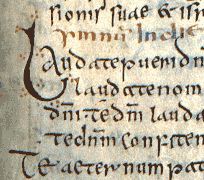 sionis suae & isr
ymnus In die
Laudate pueri dnm
laudate nom
dni. te dm lauda
te dnm confitem
Te aeternum pat